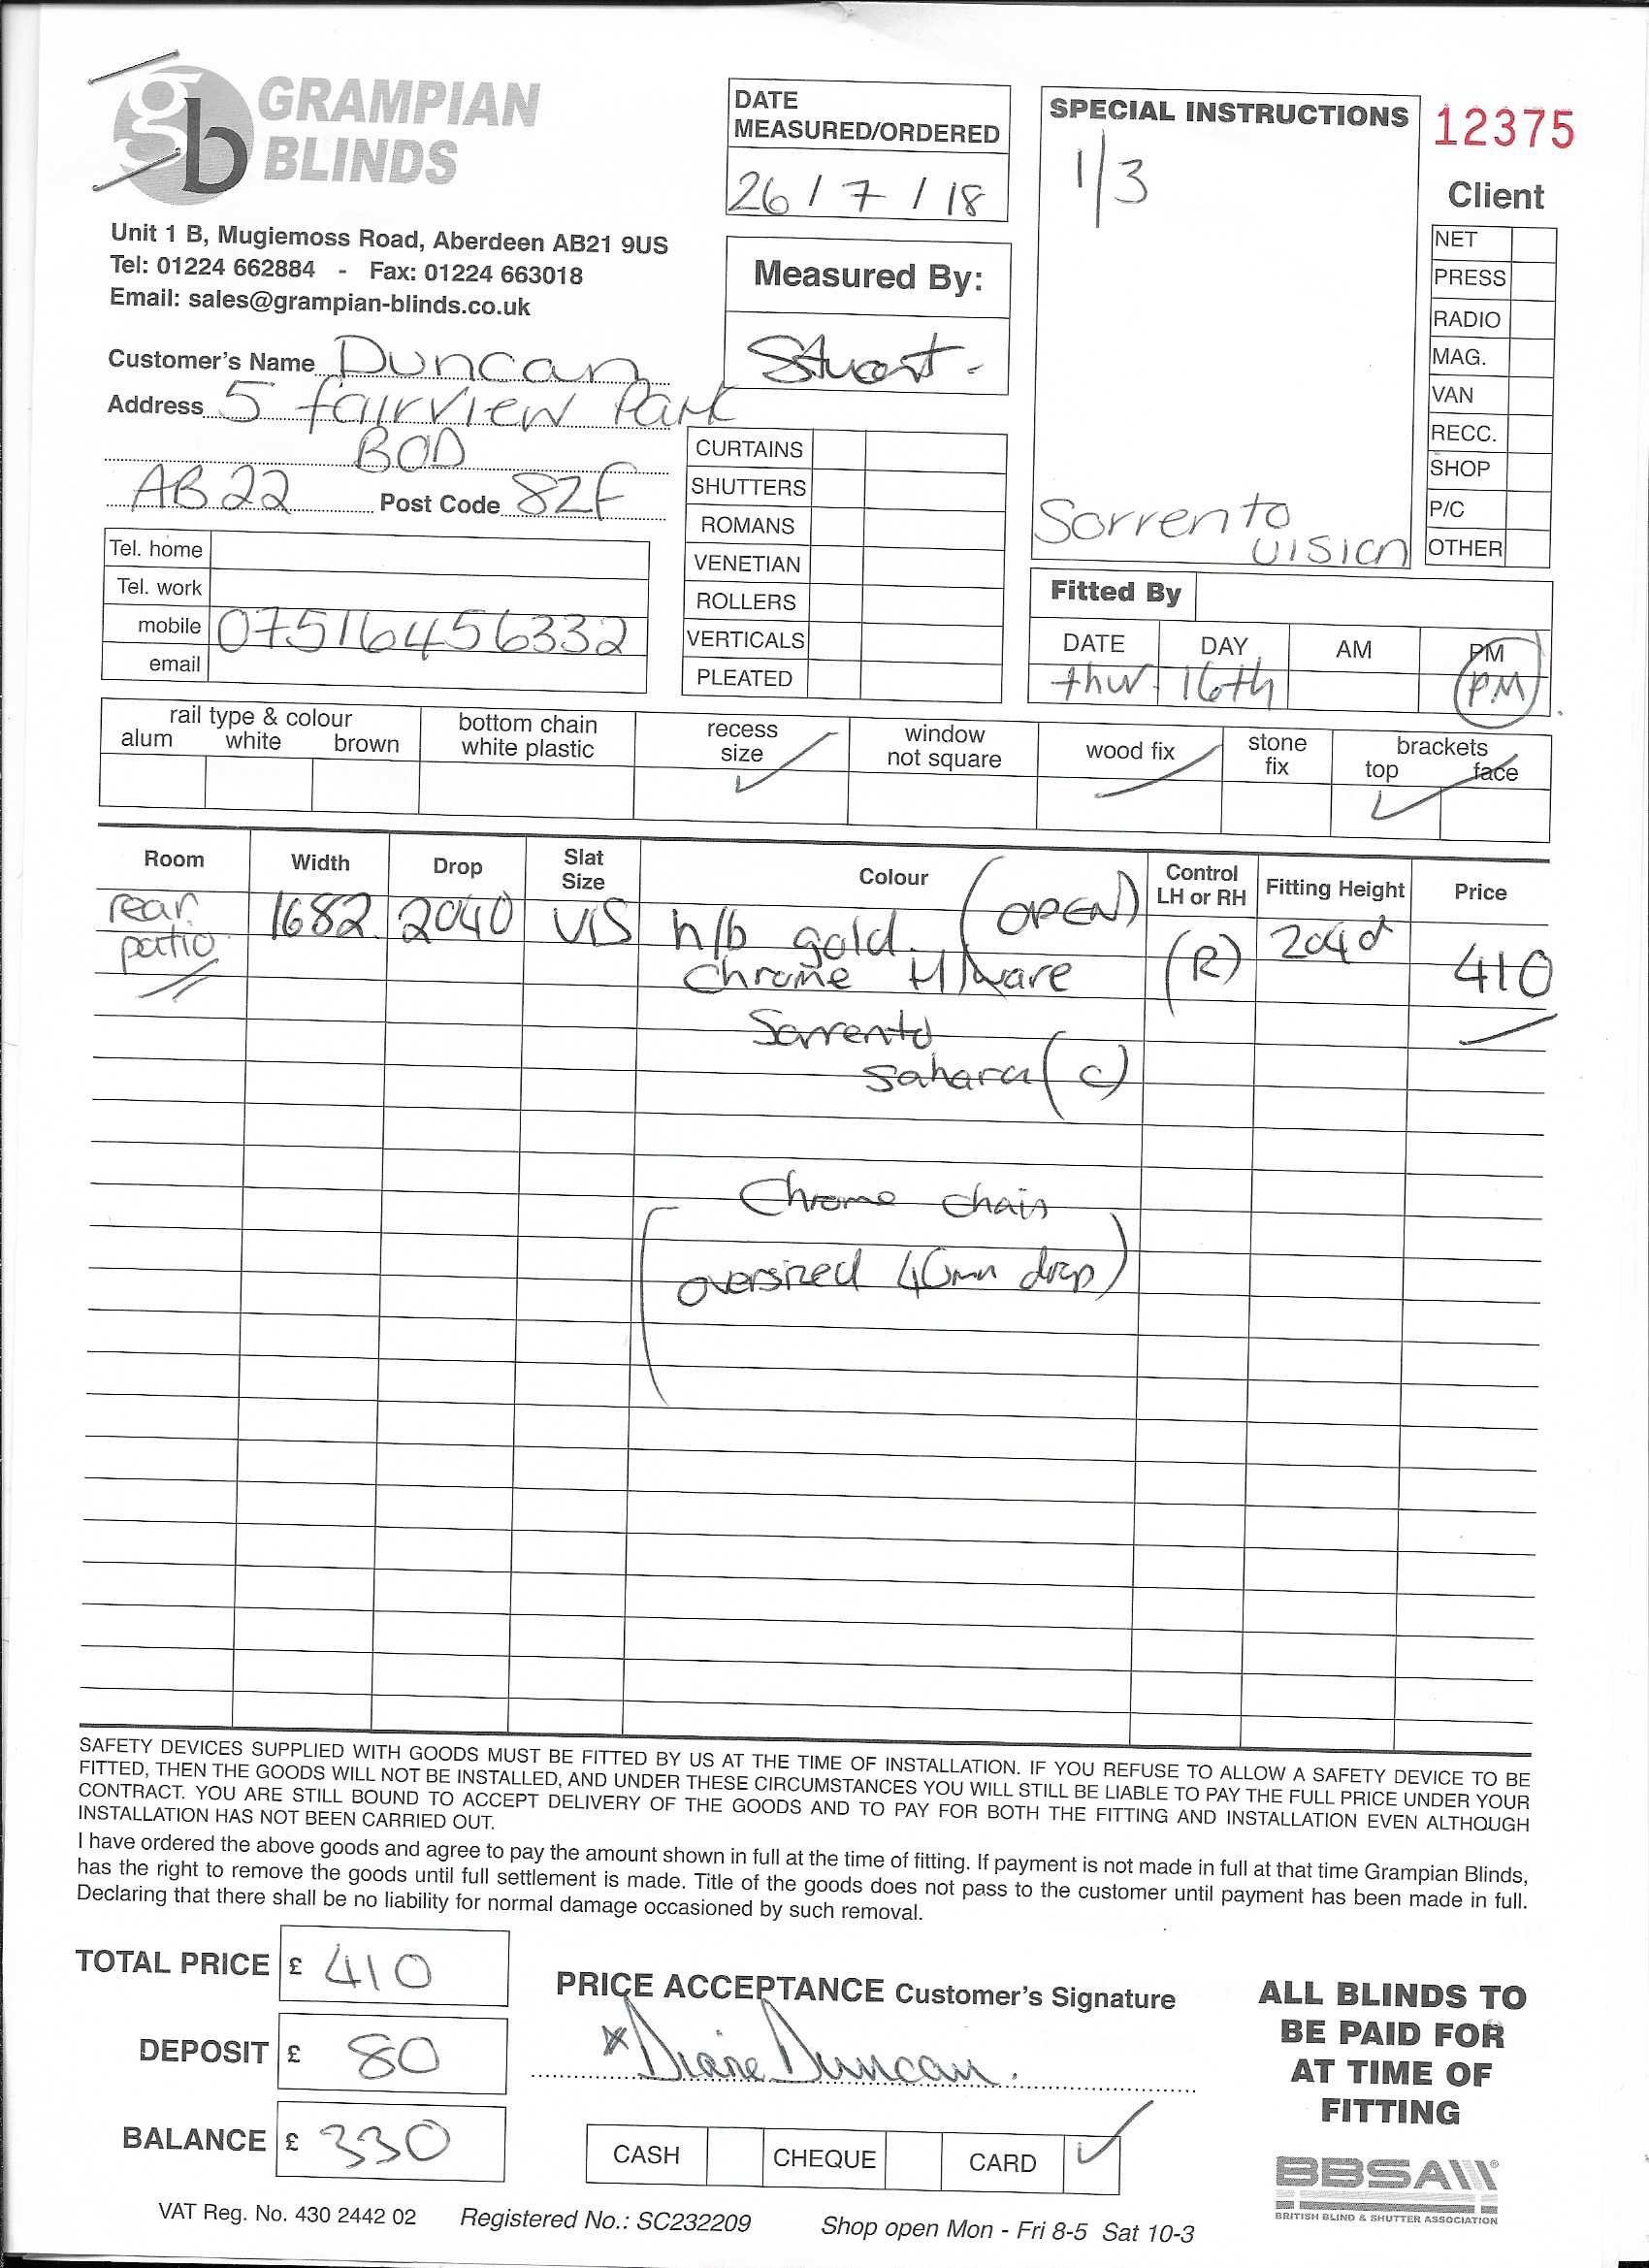 gb GRAMPIAN
BLINDS
Unit 1 B, Mugiemoss Road, Aberdeen AB21 9US
Tel: 01224 662884 - Fax: 01224 663018
Email: sales@grampian-blinds.co.uk
Customer's Name Duncan
Address 5 fairview Park
BOD
AB22 Post Code 8ZF
Tel. home
Tel. work
mobile 07516456332
email
DATE
MEASURED/ORDERED
26 / 7 / 18
Measured By:
Stuart.
CURTAINS
SHUTTERS
ROMANS
VENETIAN
ROLLERS
VERTICALS
PLEATED
SPECIAL INSTRUCTIONS
1/3
Sorrento
vision
12375
Client
NET
PRESS
RADIO
MAG.
VAN
RECC.
SHOP
P/C
OTHER
Fitted By
DATE DAY AM PM
thur 16th P.M
rail type & colour
alum white brown
bottom chain
white plastic
recess
size
window
not square
wood fix
stone
fix
brackets
top face
Room Width Drop Slat Size Colour Control LH or RH Fitting Height Price
rear 1682 2040 VIS h/b gold. (OPEN) (R) 2040 410
patio Chrome H/ware
Sorrento
Sahara (C)
Chrome chain
(oversized 40mm drop)
SAFETY DEVICES SUPPLIED WITH GOODS MUST BE FITTED BY US AT THE TIME OF INSTALLATION. IF YOU REFUSE TO ALLOW A SAFETY DEVICE TO BE
FITTED, THEN THE GOODS WILL NOT BE INSTALLED, AND UNDER THESE CIRCUMSTANCES YOU WILL STILL BE LIABLE TO PAY THE FULL PRICE UNDER YOUR
CONTRACT. YOU ARE STILL BOUND TO ACCEPT DELIVERY OF THE GOODS AND TO PAY FOR BOTH THE FITTING AND INSTALLATION EVEN ALTHOUGH
INSTALLATION HAS NOT BEEN CARRIED OUT.
I have ordered the above goods and agree to pay the amount shown in full at the time of fitting. If payment is not made in full at that time Grampian Blinds,
has the right to remove the goods until full settlement is made. Title of the goods does not pass to the customer until payment has been made in full.
Declaring that there shall be no liability for normal damage occasioned by such removal.
TOTAL PRICE £ 410
DEPOSIT £ 80
BALANCE £ 330
PRICE ACCEPTANCE Customer's Signature
*Diane Duncan.
CASH CHEQUE CARD ✓
ALL BLINDS TO
BE PAID FOR
AT TIME OF
FITTING
BBSA
BRITISH BLIND & SHUTTER ASSOCIATION
VAT Reg. No. 430 2442 02 Registered No.: SC232209 Shop open Mon - Fri 8-5 Sat 10-3